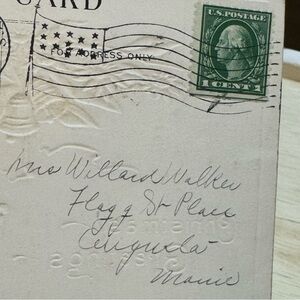 CARD
U.S. POSTAGE
FOR ADDRESS ONLY
1 CENT 1
Mrs Willard Walker
Flagg St Place
Augusta
Maine